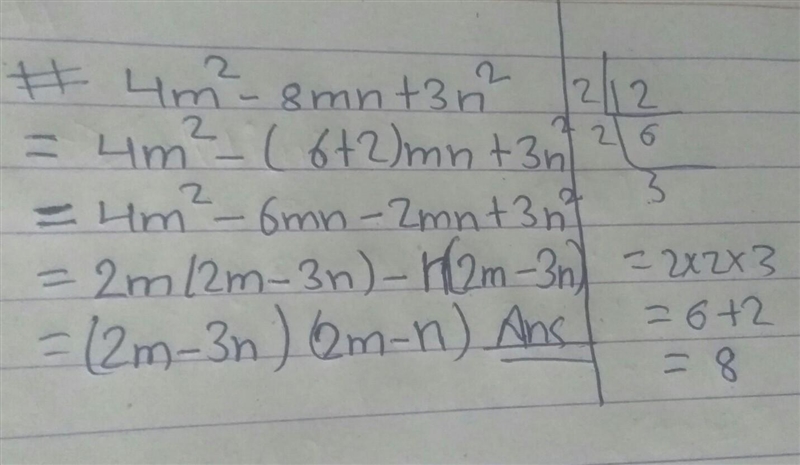 # 4m² - 8mn + 3n²
= 4m² - (6+2)mn + 3n²
= 4m² - 6mn - 2mn + 3n²
= 2m(2m - 3n) - n(2m - 3n)
= (2m - 3n) (2m - n) Ans
2 | 12
2 | 6
3
= 2×2×3
= 6+2
= 8